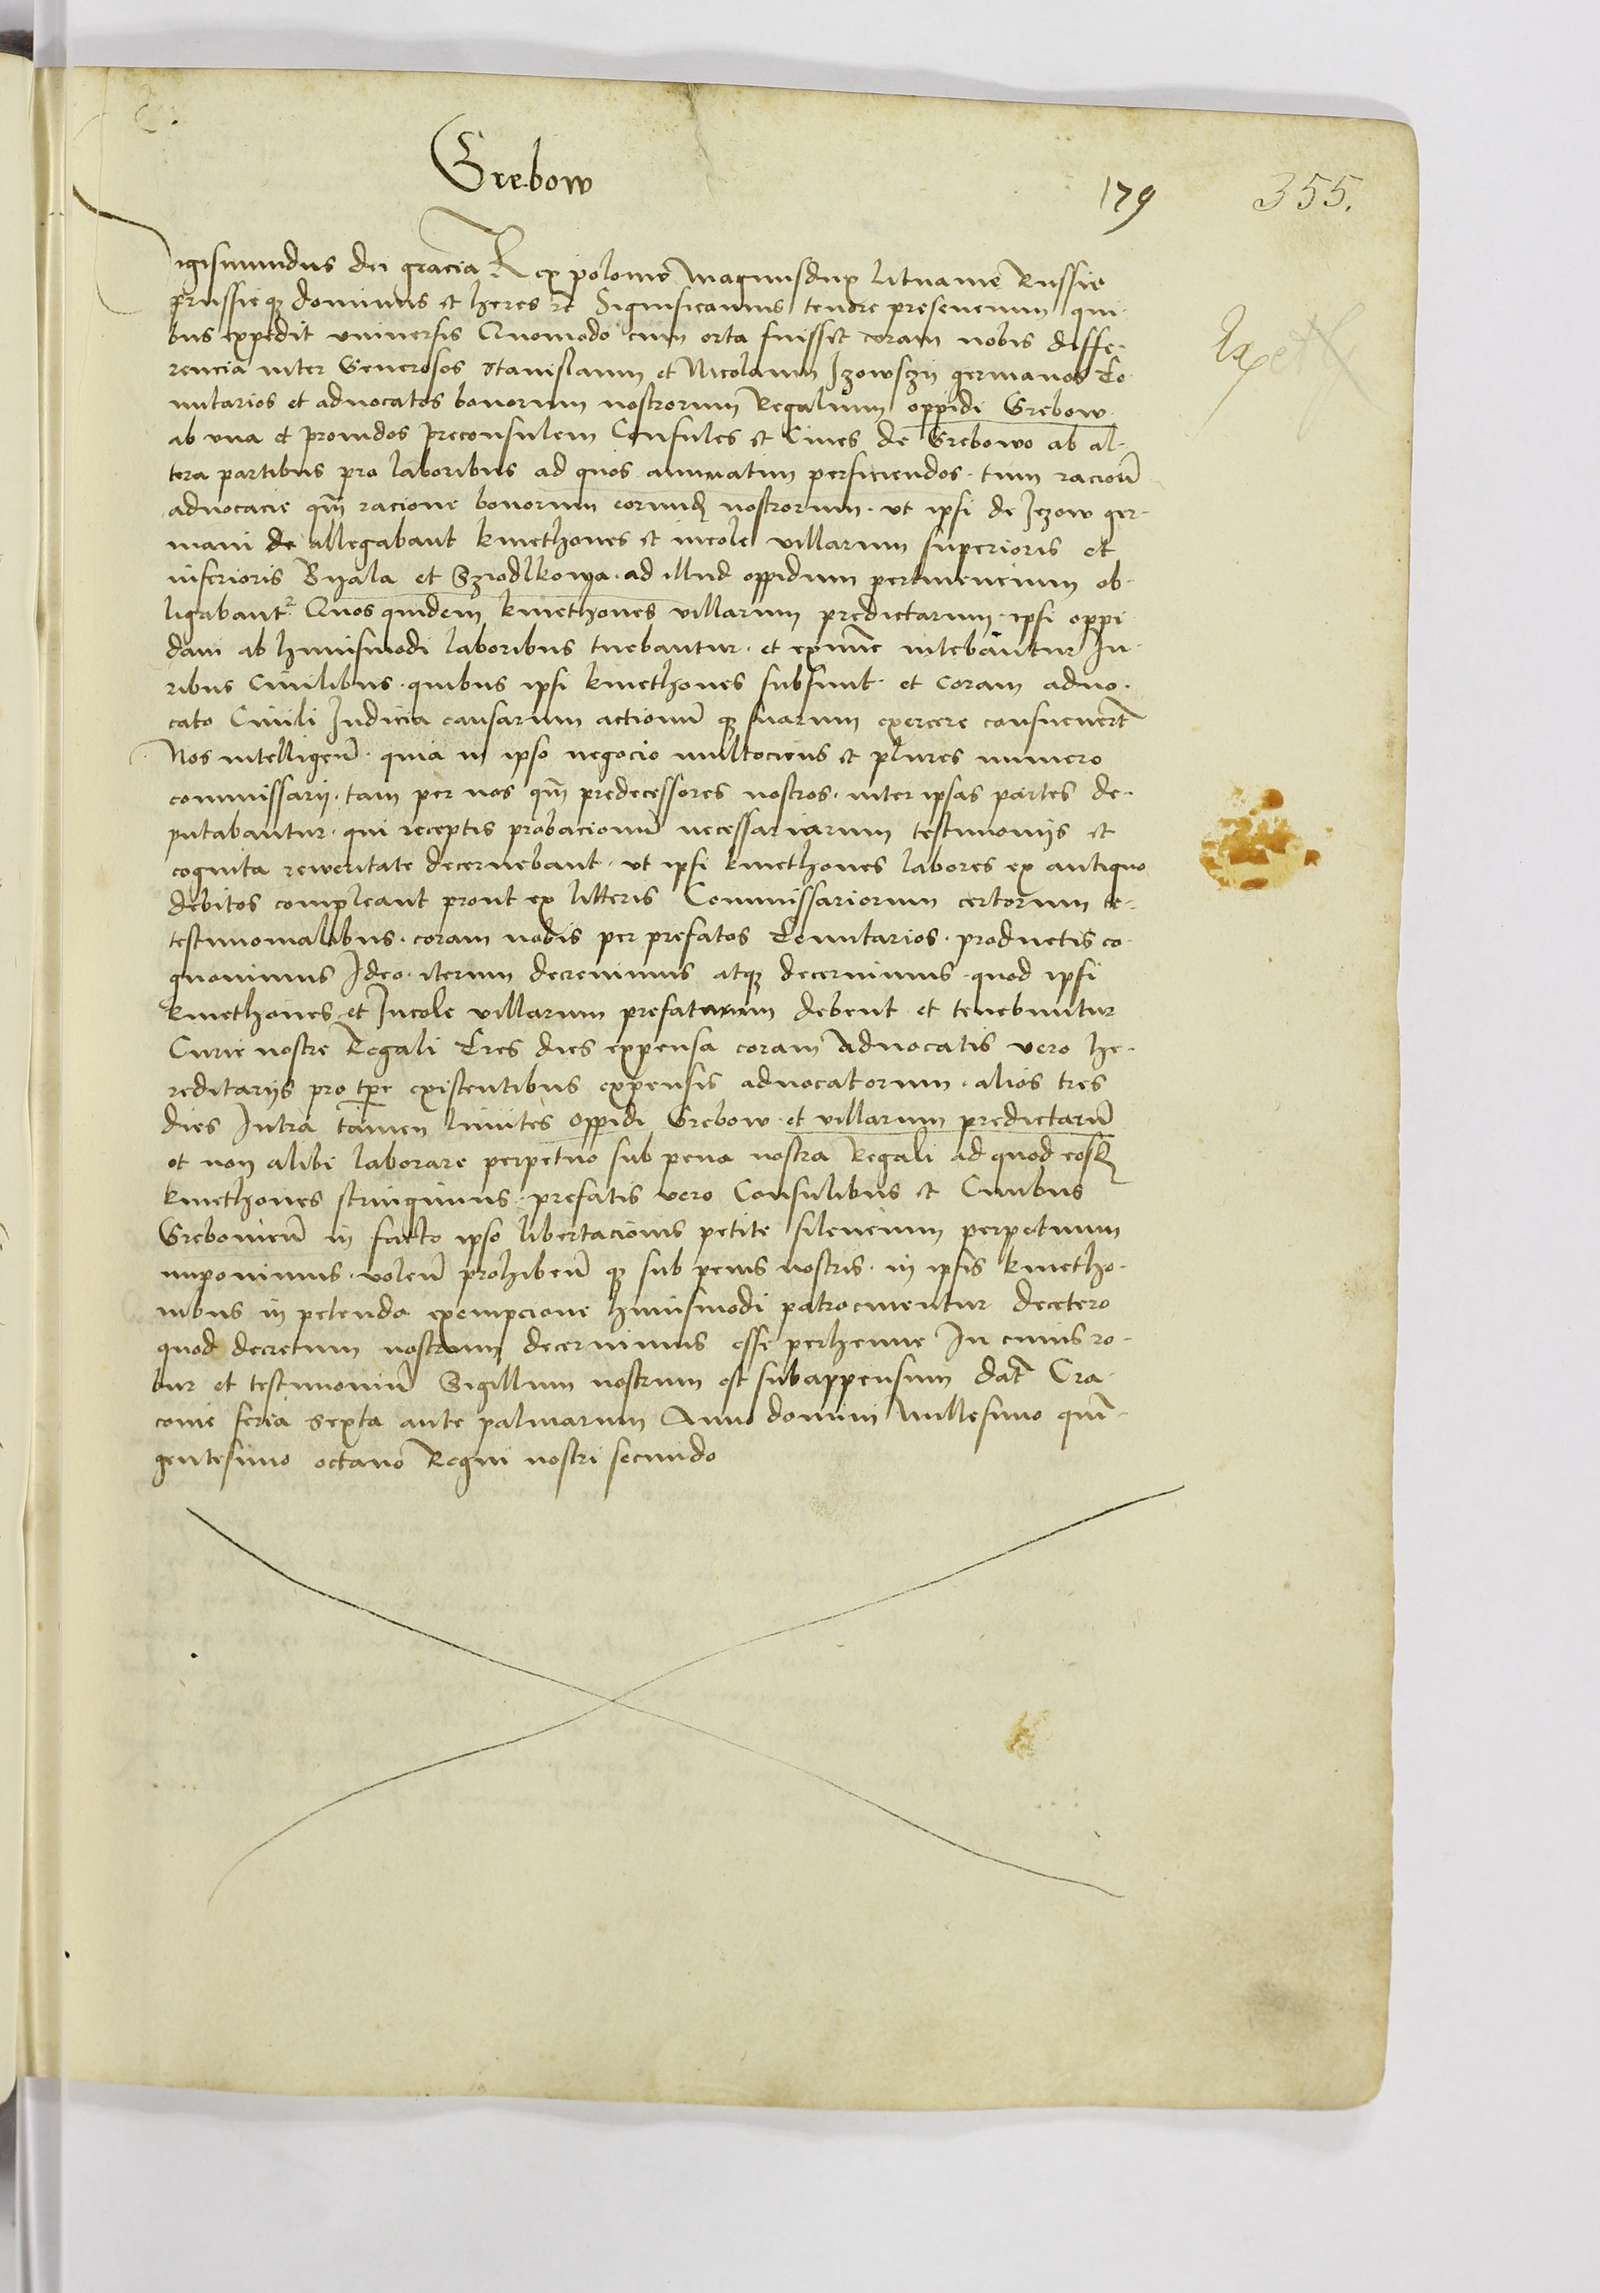 Grebow
179
355.
igismundus dei gracia Rex polonie Magnusdux lituanie Russie
prussieqz dominus et heres rc Significamus tenore presencium qui-
bus expedit vniuersis Quomodo cum orta fuisset coram nobis diffe-
rencia inter Generosos Stanislaum et Nicolaum Jzowszy germanos te-
nutarios et aduocatos bonorum nostrorum Regalium oppidi Grebow
ab vna et prouidos preconsulem Consules et Ciues de Grebowo ab al-
tera partibus pro laboribus ad quos annuatim perficiendos. tum racione
aduocacie qm racione bonorum eorundem nostrorum. vt ipsi de Jezow ger-
mani de allegabant kmethones et incole villarum superioris et
inferioris Byala et Sziodlkowa. ad illud oppidum pertinencium ob-
ligabantur Quos quidem kmethones villarum predictarum. ipsi oppi-
dani ab huiusmodi laboribus tuebantur. et eximere nitebantur Ju-
ribus Ciuilibus. quibus ipsi kmethones subsunt. et coram aduo-
cato Ciuili Judicia causarum actionum qz suarum exercere consueuert
Nos intelligen. quia in ipso negocio multociens et plures numero
commissarij. tam per nos qm predecessores nostros. inter ipsas partes de-
putabantur. qui receptis probacionum necessariarum testimonijs et
cognita reweritate decernebant. vt ipsi kmethones labores ex antiquo
debitos compleant prout ex litteris Commissariorum certorum te-
testimonialibus. coram nobis per prefatos tenutarios. productis co-
gnouimus Jdeo. iterum decreuimus atqz decernimus. quod ipsi
kmethones et Jncole villarum prefatarum debent et tenebuntur
Curie nostre Regali tres dies expensa eorum Aduocatis vero he-
reditarijs pro tpe existentibus expensis aduocatorum. alios tres
dies Jntra tamen limites oppidi Grebow. et villarum predictarum
et non alibi laborare perpetuo sub pena nostra Regali ad quod eosdem
kmethones stringimus. prefatis vero Consulibus et Ciuibus
Grebouien in facto ipso libertacionis petite silencium perpetuum
imponimus. volen prohiben qz sub penis nostris. in ipsis kmetho-
nibus in petenda exempcione huiusmodi patrocinentur decetero
quod decretum nostrum decernimus esse perhenne Jn cuius ro-
bur et testimonium Sigillum nostrum est subappensum dat Cra-
couie feria sexta ante palmarum Anno domini Millesimo quin-
gentesimo octauo Regni nostri secundo